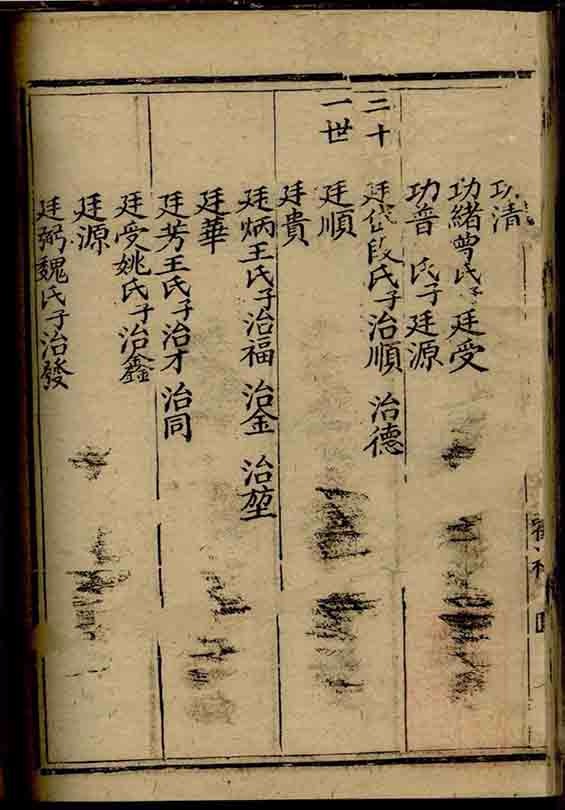 功清
功緒曾氏子廷受
功普 氏子廷源
二十
一世
廷岱段氏子治順 治德
廷順
廷貴
廷炳王氏子治福 治金 治堃
廷華
廷芳王氏子治才 治同
廷受姚氏子治鑫
廷源
廷弼魏氏子治發